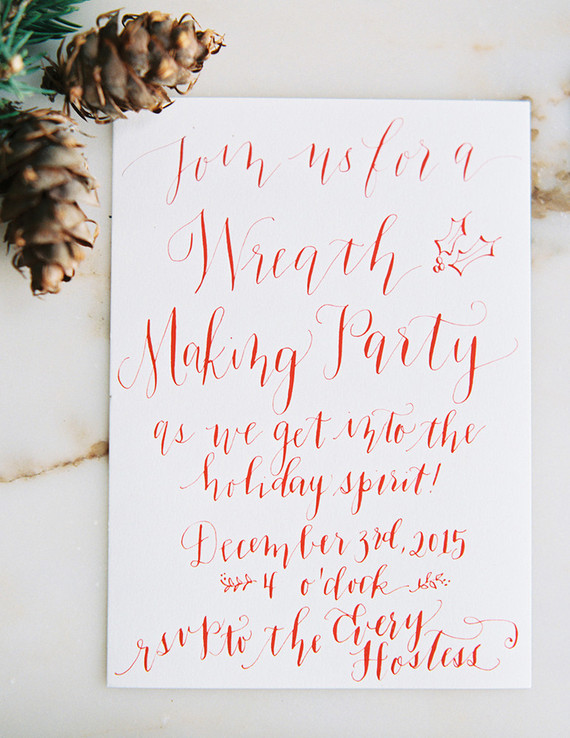 Join us for a
Wreath
Making Party
as we get into the
holiday spirit!
December 3rd, 2015
4 o'clock
rsvp to the Every
Hostess